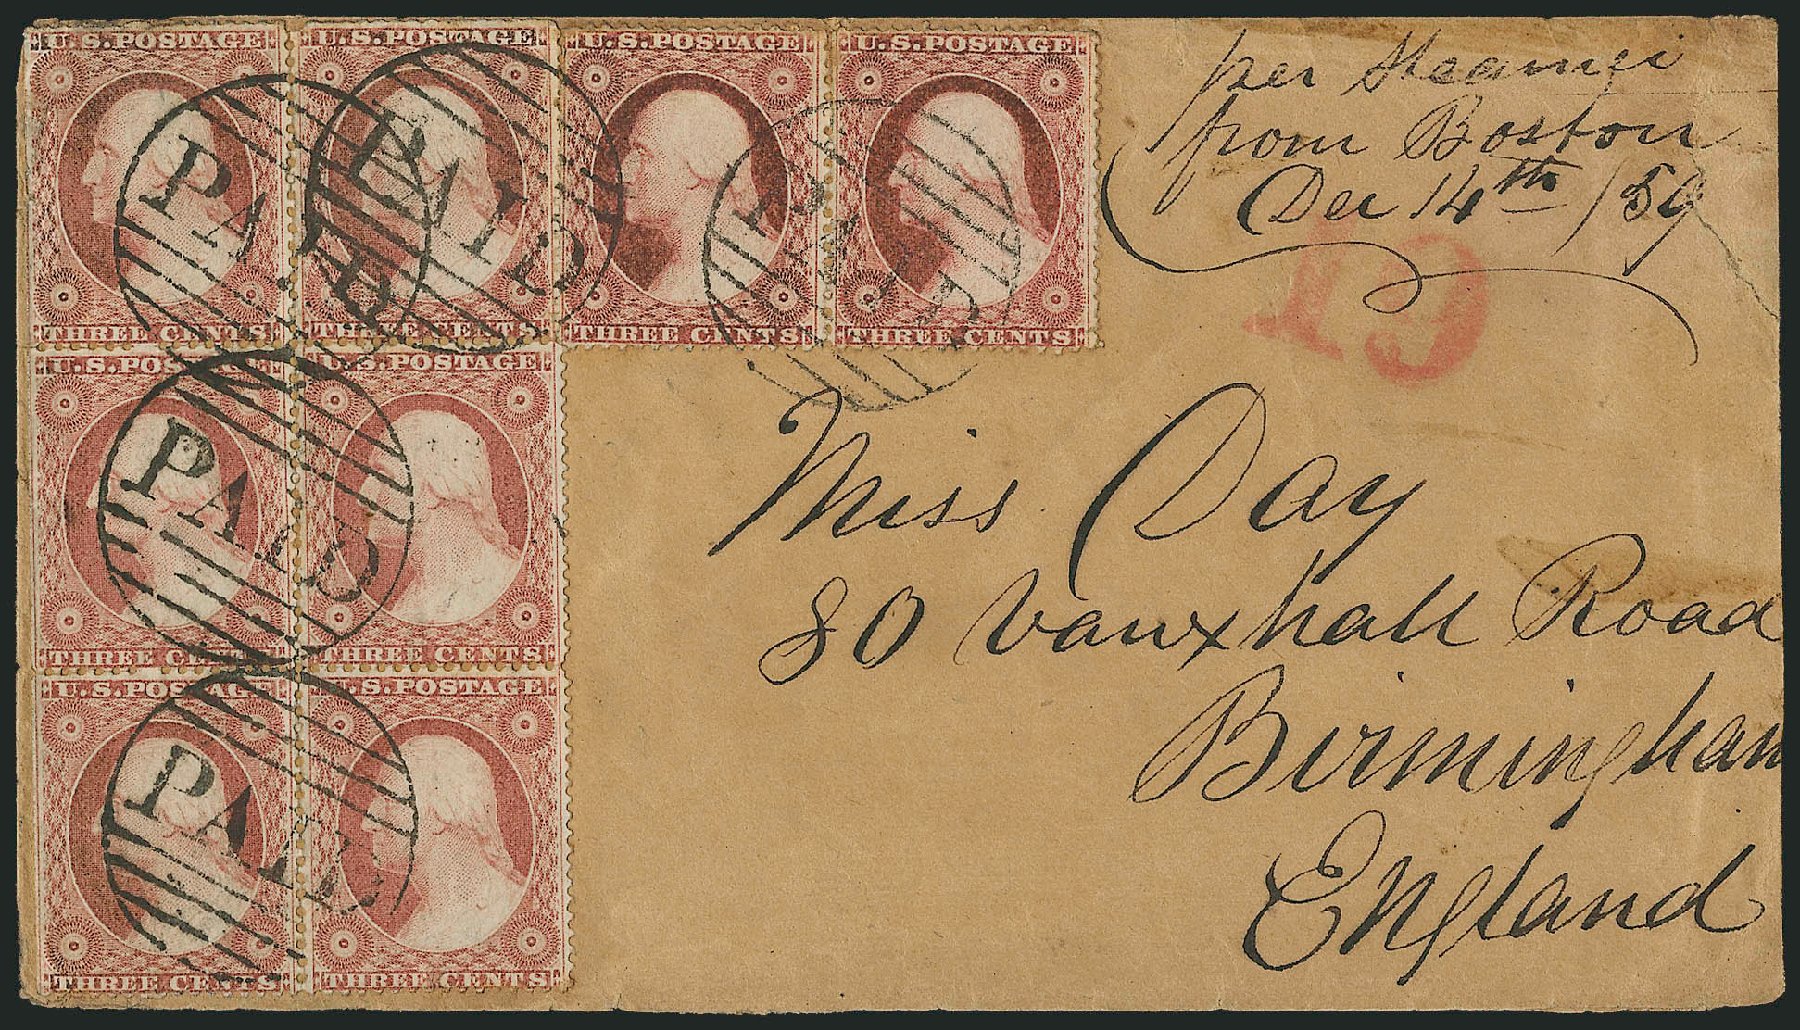 U.S. POSTAGE U.S. POSTAGE U.S. POSTAGE U.S. POSTAGE
PAID PAID PAID
THREE CENTS THREE CENTS THREE CENTS THREE CENTS
U.S. POSTAGE U.S. POSTAGE
PAID
THREE CENTS THREE CENTS
U.S. POSTAGE U.S. POSTAGE
PAID
THREE CENTS THREE CENTS
per Steamer
from Boston
Dec 14th /59
19
Miss Day
80 Vauxhall Road
Birmingham
England